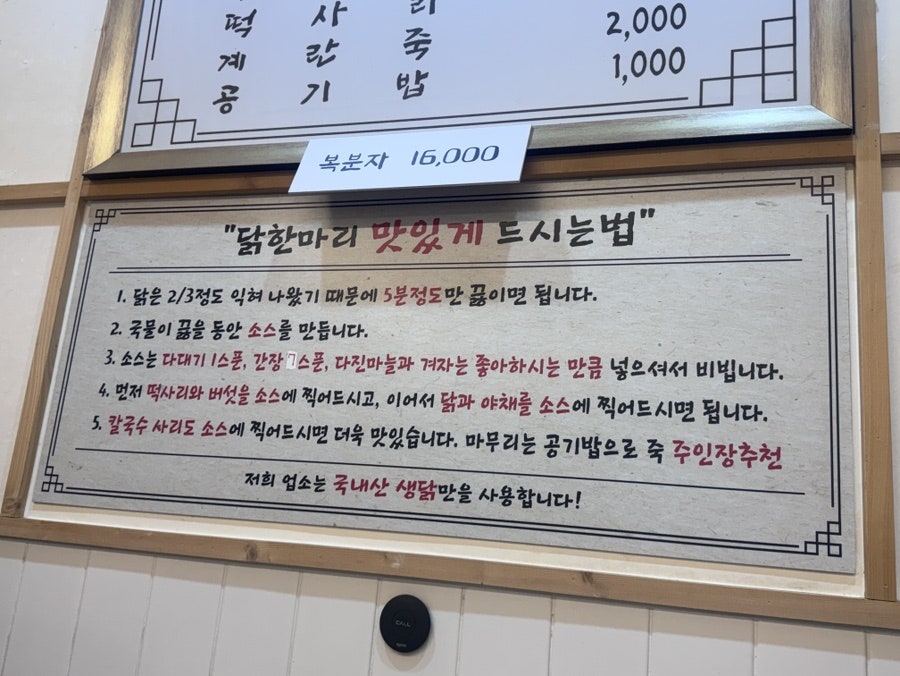 떡 사 리 2,000
계 란 죽 1,000
공 기 밥
복분자 16,000
"닭한마리 맛있게 드시는법"
1. 닭은 2/3정도 익혀 나왔기 때문에 5분정도만 끓이면 됩니다.
2. 국물이 끓을 동안 소스를 만듭니다.
3. 소스는 다대기 1스푼, 간장 7스푼, 다진마늘과 겨자는 좋아하시는 만큼 넣으셔서 비빕니다.
4. 먼저 떡사리와 버섯을 소스에 찍어드시고, 이어서 닭과 야채를 소스에 찍어드시면 됩니다.
5. 칼국수 사리도 소스에 찍어드시면 더욱 맛있습니다. 마무리는 공기밥으로 죽 주인장추천
저희 업소는 국내산 생닭만을 사용합니다!
CALL